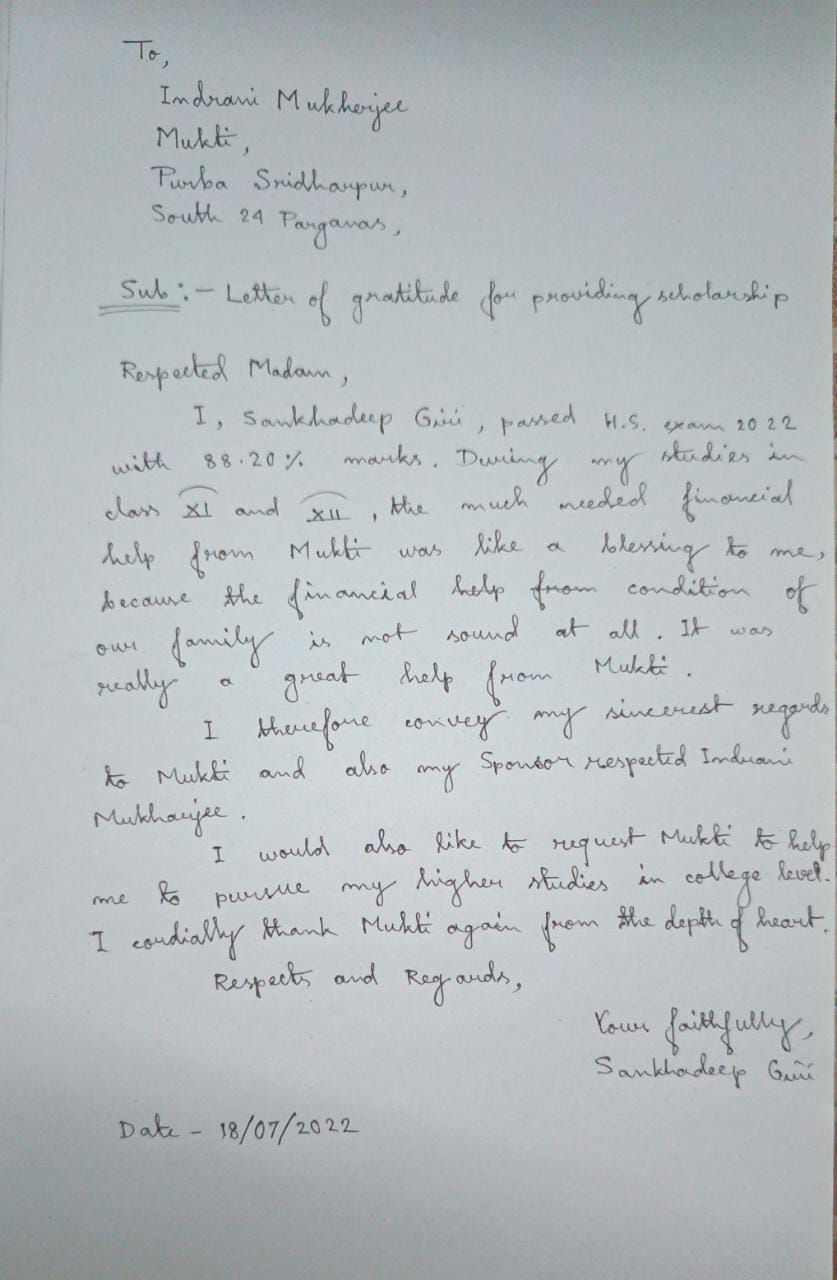 To,
Indrani Mukherjee
Mukti,
Purba Sridharpur,
South 24 Parganas,
Sub:- Letter of gratitude for providing scholarship
Respected Madam,
I, Sankhadeep Giri, passed H.S. exam 2022
with 88.20% marks. During my studies in
class XI and XII, the much needed financial
help from Mukti was like a blessing to me,
because the financial help from condition of
our family is not sound at all. It was
really a great help from Mukti.
I therefore convey my sincerest regards
to Mukti and also my Sponsor respected Indrani
Mukharjee.
I would also like to request Mukti to help
me to pursue my higher studies in college level.
I cordially thank Mukti again from the depth of heart.
Respects and Regards,
Your faithfully,
Sankhadeep Giri
Date - 18/07/2022